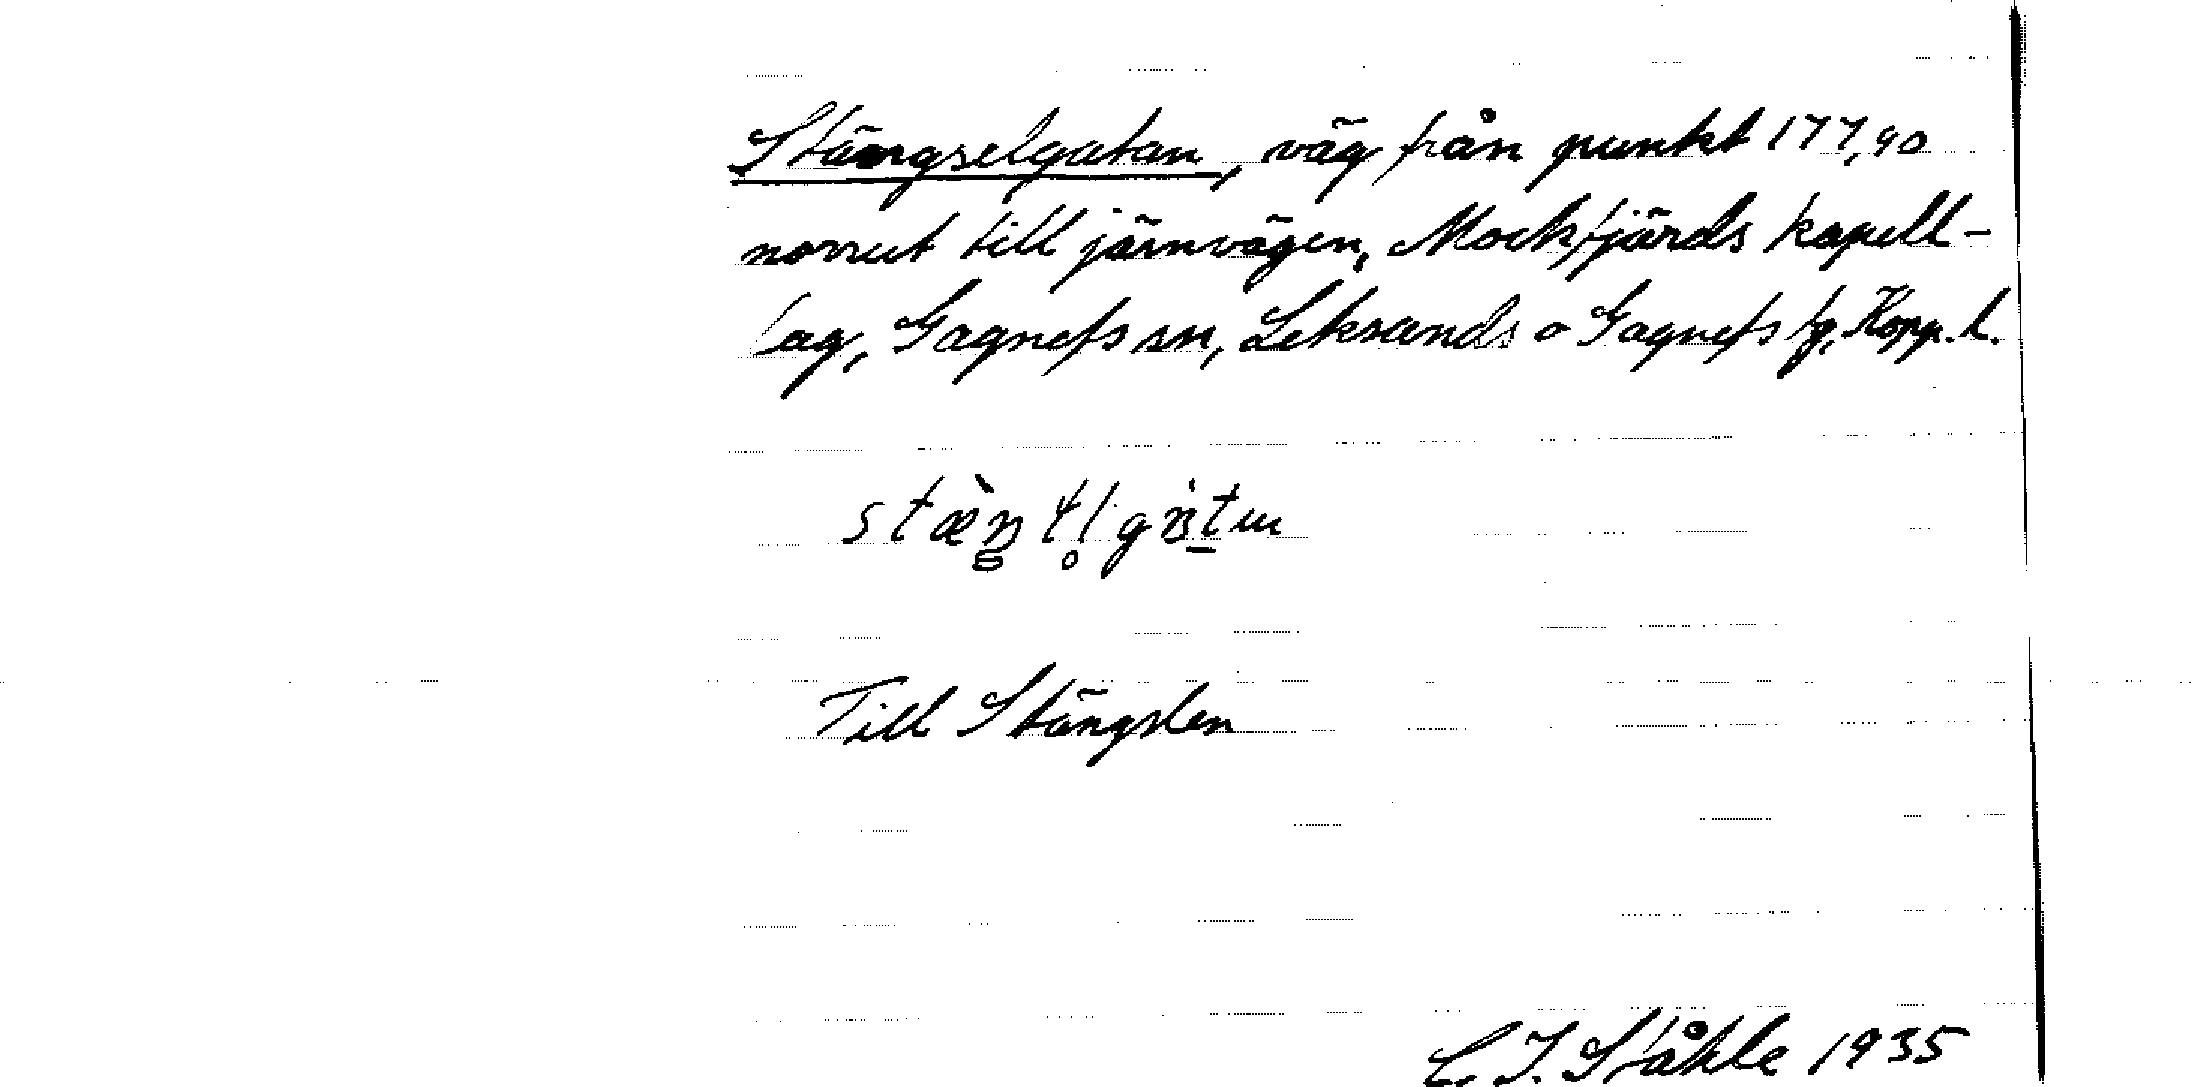 Stängselgatan, väg från punkt 177,90
norrut till järnvägen, Mockfjärds kapell-
lag, Gagnefs sn, Leksands o Gagnefs tg, Kopp. l.
Till Stängslen
C. I. Ståhle 1935